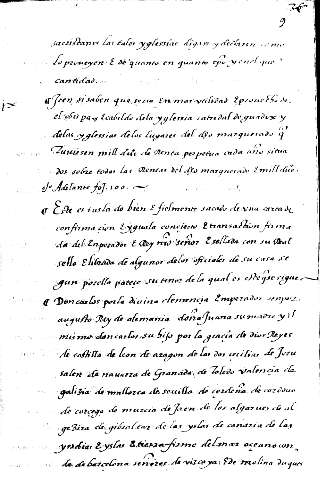 9
sacristanes las tales yglesias digan y declaren como
lo proueyen E de quanto en quanto tpo y en el que
cantidad.
¶ Iten si saben que seria En mas vtilidad E prouecho de
el obispo y Cabildo dela yglesia catedral de guadix y
delas yglesias delos lugares del dho marquesado q̃
Tuuiesen mill ds de Renta perpetua cada año situa
dos sobre todas las Rentas del dho marquesado E mill ds
Adelante foj. 100.
¶ Este es treslado bien E fielmente sacado de vna carta de
confirmaçion E yguala conçierto E transacion firma
da del Emperador E Rey nro señor E sellada con su Real
sello E librada de algunos delos ofiçiales de su casa se
gun por ella pareçe su tenor dela qual es este que se sigue
¶ Don carlos por la divina clemençia Emperador senper
augusto Rey de alemania doña Juana su madre y el
mismo don carlos su hijo por la graçia de dios Reyes
de castilla de leon de aragon de las dos çeçilias de Jeru
salen de nauarra de Granada, de Toledo valençia de
galizia de mallorca de seuilla de cerdeña de cordoua
de corçega de murçia de Jaen de los algarues de al
gezira de gibraltar de las yslas de canaria de las
yndias E yslas E tierra firme del mar oçeano con
des de barcelona señores de vizcaya E de molina duques